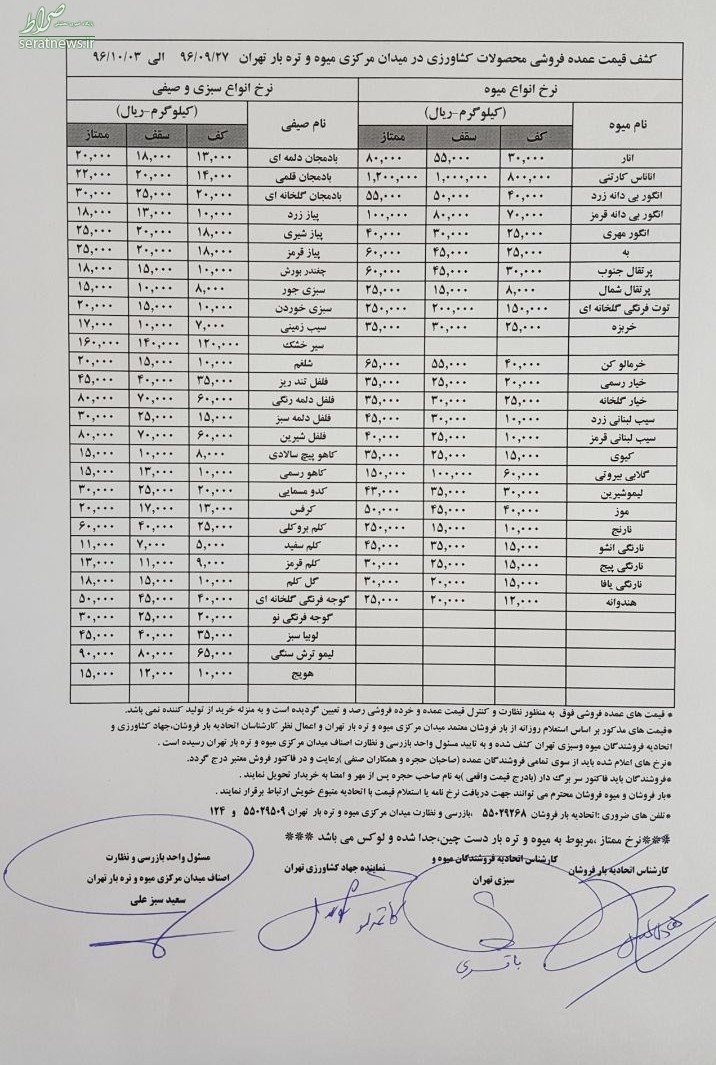 صراط
پایگاه خبری تحلیلی
seratnews.ir
کشف قیمت عمده فروشی محصولات کشاورزی در میدان مرکزی میوه و تره بار تهران ۹۶/۰۹/۲۷ الی ۹۶/۱۰/۰۳
نرخ انواع میوه نرخ انواع سبزی و صیفی
نام میوه (کیلوگرم-ریال) نام صیفی (کیلوگرم-ریال)
کف سقف ممتاز کف سقف ممتاز
انار ۳۰,۰۰۰ ۵۵,۰۰۰ ۸۰,۰۰۰ بادمجان دلمه ای ۱۳,۰۰۰ ۱۸,۰۰۰ ۲۰,۰۰۰
اناناس کارتنی ۸۰۰,۰۰۰ ۱,۰۰۰,۰۰۰ ۱,۲۰۰,۰۰۰ بادمجان قلمی ۱۴,۰۰۰ ۲۰,۰۰۰ ۲۲,۰۰۰
انگور بی دانه زرد ۴۰,۰۰۰ ۵۰,۰۰۰ ۵۵,۰۰۰ بادمجان گلخانه ای ۲۰,۰۰۰ ۲۵,۰۰۰ ۳۰,۰۰۰
انگور بی دانه قرمز ۷۰,۰۰۰ ۸۰,۰۰۰ ۱۰۰,۰۰۰ پیاز زرد ۱۰,۰۰۰ ۱۳,۰۰۰ ۱۸,۰۰۰
انگور مهری ۲۵,۰۰۰ ۳۰,۰۰۰ ۴۰,۰۰۰ پیاز شیری ۱۸,۰۰۰ ۲۰,۰۰۰ ۲۵,۰۰۰
به ۲۵,۰۰۰ ۴۵,۰۰۰ ۶۰,۰۰۰ پیاز قرمز ۱۸,۰۰۰ ۲۰,۰۰۰ ۲۵,۰۰۰
پرتقال جنوب ۳۰,۰۰۰ ۴۵,۰۰۰ ۶۰,۰۰۰ چغندر بورش ۱۰,۰۰۰ ۱۵,۰۰۰ ۱۸,۰۰۰
پرتقال شمال ۸,۰۰۰ ۱۵,۰۰۰ ۲۵,۰۰۰ سبزی جور ۸,۰۰۰ ۱۰,۰۰۰ ۱۵,۰۰۰
توت فرنگی گلخانه ای ۱۵۰,۰۰۰ ۲۰۰,۰۰۰ ۲۵۰,۰۰۰ سبزی خوردن ۱۰,۰۰۰ ۱۵,۰۰۰ ۲۰,۰۰۰
خربزه ۲۵,۰۰۰ ۳۰,۰۰۰ ۳۵,۰۰۰ سیب زمینی ۷,۰۰۰ ۱۰,۰۰۰ ۱۷,۰۰۰
سیر خشک ۱۲۰,۰۰۰ ۱۴۰,۰۰۰ ۱۶۰,۰۰۰
خرمالو کن ۴۰,۰۰۰ ۵۵,۰۰۰ ۶۵,۰۰۰ شلغم ۱۰,۰۰۰ ۱۵,۰۰۰ ۲۰,۰۰۰
خیار رسمی ۲۰,۰۰۰ ۲۵,۰۰۰ ۳۵,۰۰۰ فلفل تند ریز ۳۵,۰۰۰ ۴۰,۰۰۰ ۴۵,۰۰۰
خیار گلخانه ۲۵,۰۰۰ ۳۰,۰۰۰ ۳۵,۰۰۰ فلفل دلمه رنگی ۶۰,۰۰۰ ۷۰,۰۰۰ ۸۰,۰۰۰
سیب لبنانی زرد ۱۰,۰۰۰ ۳۰,۰۰۰ ۴۵,۰۰۰ فلفل دلمه سبز ۱۵,۰۰۰ ۲۵,۰۰۰ ۳۰,۰۰۰
سیب لبنانی قرمز ۱۰,۰۰۰ ۲۵,۰۰۰ ۴۰,۰۰۰ فلفل شیرین ۶۰,۰۰۰ ۷۰,۰۰۰ ۸۰,۰۰۰
کیوی ۱۵,۰۰۰ ۲۵,۰۰۰ ۳۵,۰۰۰ کاهو پیچ سالادی ۸,۰۰۰ ۱۰,۰۰۰ ۱۵,۰۰۰
گلابی بیروتی ۶۰,۰۰۰ ۱۰۰,۰۰۰ ۱۵۰,۰۰۰ کاهو رسمی ۱۰,۰۰۰ ۱۳,۰۰۰ ۱۵,۰۰۰
لیموشیرین ۳۰,۰۰۰ ۳۵,۰۰۰ ۴۳,۰۰۰ کدو مسمایی ۲۰,۰۰۰ ۲۵,۰۰۰ ۳۰,۰۰۰
موز ۴۰,۰۰۰ ۴۵,۰۰۰ ۵۰,۰۰۰ کرفس ۱۳,۰۰۰ ۱۷,۰۰۰ ۲۰,۰۰۰
نارنج ۱۰,۰۰۰ ۱۵,۰۰۰ ۲۵۰,۰۰۰ کلم بروکلی ۲۵,۰۰۰ ۴۰,۰۰۰ ۶۰,۰۰۰
نارنگی انشو ۱۵,۰۰۰ ۳۵,۰۰۰ ۴۵,۰۰۰ کلم سفید ۵,۰۰۰ ۷,۰۰۰ ۱۱,۰۰۰
نارنگی پیج ۱۵,۰۰۰ ۲۵,۰۰۰ ۳۰,۰۰۰ کلم قرمز ۹,۰۰۰ ۱۱,۰۰۰ ۱۳,۰۰۰
نارنگی یافا ۱۵,۰۰۰ ۲۰,۰۰۰ ۳۰,۰۰۰ گل کلم ۱۰,۰۰۰ ۱۵,۰۰۰ ۱۸,۰۰۰
هندوانه ۱۲,۰۰۰ ۲۰,۰۰۰ ۲۵,۰۰۰ گوجه فرنگی گلخانه ای ۴۰,۰۰۰ ۴۵,۰۰۰ ۵۰,۰۰۰
گوجه فرنگی نو ۲۰,۰۰۰ ۲۵,۰۰۰ ۳۰,۰۰۰
لوبیا سبز ۳۵,۰۰۰ ۴۰,۰۰۰ ۴۵,۰۰۰
لیمو ترش سنگی ۶۵,۰۰۰ ۸۰,۰۰۰ ۹۰,۰۰۰
هویج ۱۰,۰۰۰ ۱۲,۰۰۰ ۱۵,۰۰۰
* قیمت های عمده فروشی فوق به منظور نظارت و کنترل قیمت عمده و خرده فروشی رصد و تعیین گردیده است و به منزله خرید از تولید کننده نمی باشد.
*قیمت های مذکور بر اساس استعلام روزانه از بار فروشان معتمد میدان مرکزی میوه و تره بار تهران و اعمال نظر کارشناسان اتحادیه بار فروشان،جهاد کشاورزی و
اتحادیه فروشندگان میوه وسبزی تهران کشف شده و به تایید مسئول واحد بازرسی و نظارت اصناف میدان مرکزی میوه و تره بار تهران رسیده است .
*نرخ های اعلام شده باید از سوی تمامی فروشندگان عمده (صاحبان حجره و همکاران صنفی )رعایت و در فاکتور فروش معتبر درج گردد.
*فروشندگان باید فاکتور سر برگ دار (بادرج قیمت واقعی )به نام صاحب حجره پس از مهر و امضا به خریدار تحویل نمایند .
*بار فروشان و میوه فروشان محترم می توانند جهت دریافت نرخ نامه یا استعلام قیمت با اتحادیه متبوع خویش ارتباط برقرار نمایند .
*تلفن های ضروری :اتحادیه بار فروشان ۵۵۰۲۹۲۶۸ ،بازرسی و نظارت میدان مرکزی میوه و تره بار تهران ۵۵۰۲۹۵۰۹ و ۱۲۴
***نرخ ممتاز ،مربوط به میوه و تره بار دست چین،جدا شده و لوکس می باشد ***
کارشناس اتحادیه بار فروشان
کارشناس اتحادیه فروشندگان میوه و
سبزی تهران
نماینده جهاد کشاورزی تهران
مسئول واحد بازرسی و نظارت
اصناف میدان مرکزی میوه و تره بار تهران
سعید سبز علی
باقری